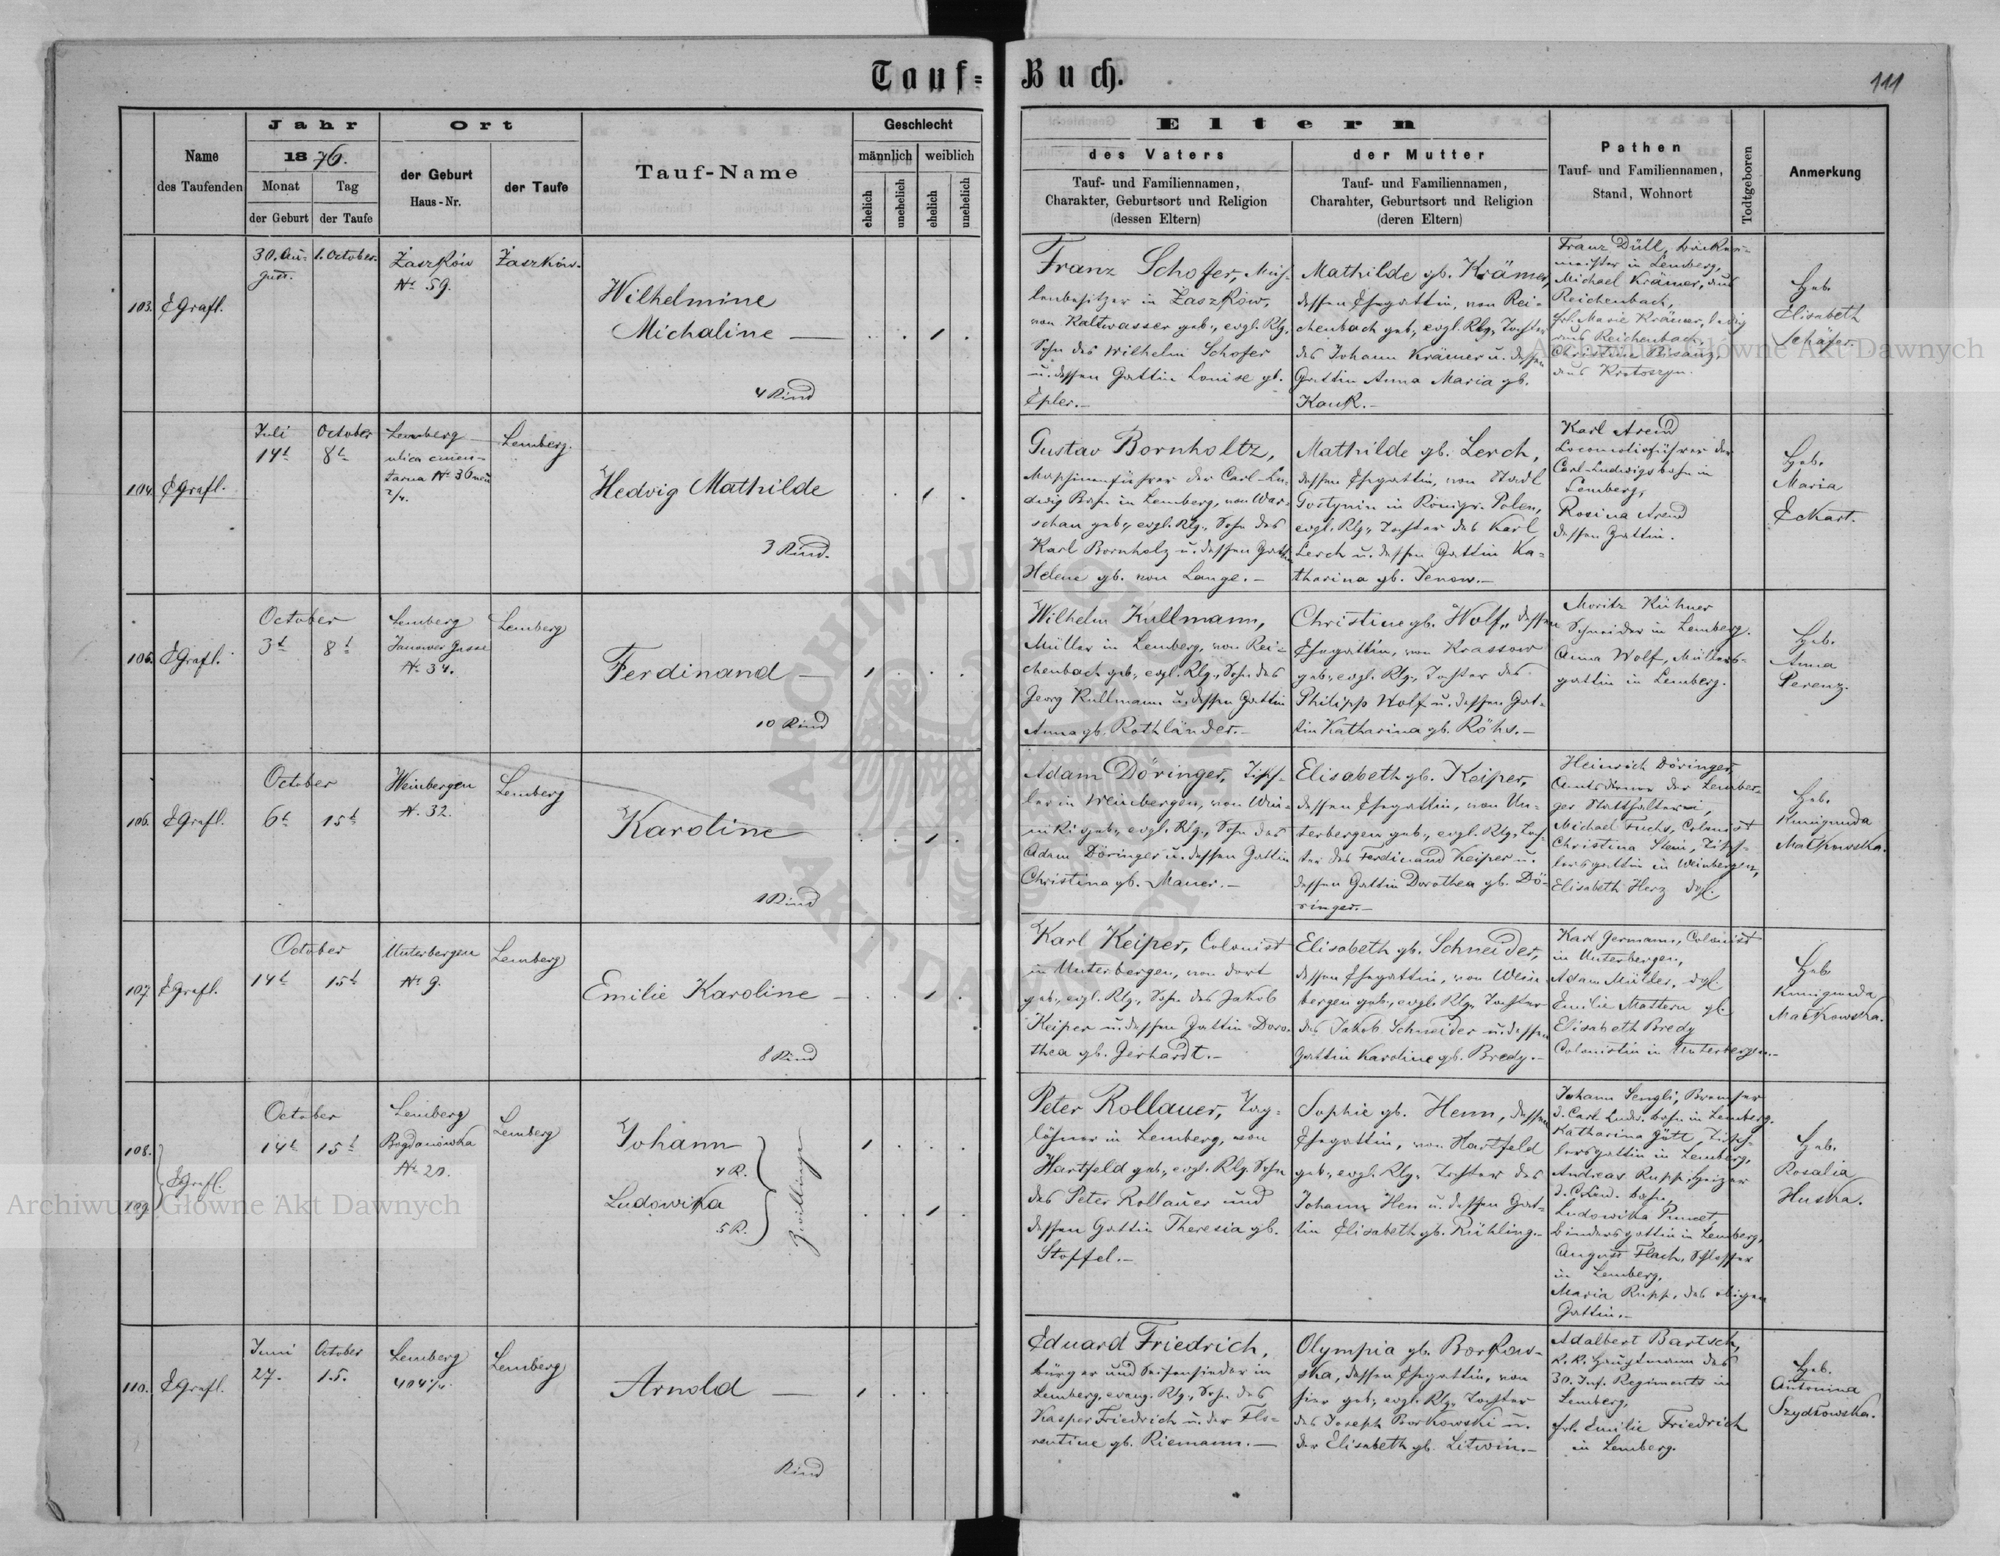 Tauf- Buch.
111
Name
des Taufenden
Jahr
1876.
Monat
Tag
der Geburt
der Taufe
Ort
der Geburt
Haus-Nr.
der Taufe
Tauf-Name
Geschlecht
männlich
weiblich
ehelich
unehelich
ehelich
unehelich
Eltern
des Vaters
Tauf- und Familiennamen,
Charakter, Geburtsort und Religion
(dessen Eltern)
der Mutter
Tauf- und Familiennamen,
Charahter, Geburtsort und Religion
(deren Eltern)
Pathen
Tauf- und Familiennamen,
Stand, Wohnort
Todtgeboren
Anmerkung
103.
30. Au-
gust.
1. October.
Żaszków
Nr. 59.
Żaszków.
Wilhelmine
Michaline
4 Kind
Franz Schofer, Müh-
lenbesitzer in Żaszków,
von Kaltwasser geb., evgl. Rlg.,
Sohn des Wilhelm Schofer
u. dessen Gattin Louise gb.
Epler.
Mathilde gb. Krämer,
dessen Ehegattin, von Rei-
chenbach geb., evgl. Rlg., Tochter
des Johann Krämer u. dessen
Gattin Anna Maria gb.
Kauk.
Franz Düll, Bäcker-
meister in Lemberg,
Michael Krämer, aus
Reichenbach,
Frl. Marie Krämer, ledig
aus Reichenbach,
Christine Bisanz,
aus Krotoszyn.
Heb.
Elisabeth
Schäfer.
104.
Juli
14t
October
8t
Lemberg
ulica cmen-
tarna Nr 36
Lemberg.
Hedwig Mathilde
3 Kind.
Gustav Bornholtz,
Maschinenführer der Carl-Lu-
dwig Bahn in Lemberg, von War-
schau geb., evgl. Rlg., Sohn des
Karl Bornholz u. dessen Gattin
Helene gb. von Lange.
Mathilde gb. Lerch,
dessen Ehegattin, von Stadt
Gostynin in Königr. Polen,
evgl. Rlg., Tochter des Karl
Lerch u. dessen Gattin Ka-
tharina gb. Jenow.
Karl Arend
Locomotivführer der
Carl-Ludwigsbahn in
Lemberg,
Rosina Arend
dessen Gattin.
Heb.
Maria
Eckart.
105.
October
3t
8t
Lemberg
Janower Gasse
Nr. 34.
Lemberg
Ferdinand
10 Kind
Wilhelm Kullmann,
Müller in Lemberg, von Rei-
chenbach geb., evgl. Rlg., Sohn des
Georg Kullmann u. dessen Gattin
Anna gb. Rothländer.
Christine gb. Wolf, dessen
Ehegattin, von Krassow
geb., evgl. Rlg., Tochter des
Philipp Wolf u. dessen Gat-
tin Katharina gb. Röhs.
Moritz Kühner
Schneider in Lemberg.
Anna Wolf, Müllers-
gattin in Lemberg.
Heb.
Anna
Perenz.
106.
October
6t
15t
Weinbergen
Nr. 32.
Lemberg
Karoline
1 Kind
Adam Döringer, Tisch-
ler in Weinbergen, von Win-
niki geb., evgl. Rlg., Sohn des
Adam Döringer u. dessen Gattin
Christina gb. Mauer.
Elisabeth gb. Keiper,
dessen Ehegattin, von Un-
terbergen geb., evgl. Rlg., Toch-
ter des Ferdinand Keiper u.
dessen Gattin Dorothea gb. Dö-
ringer.
Heinrich Döringer,
Amtsdiener der Lember-
ger Statthalterei,
Michael Fuchs, Colonist
Christina Stein, Tisch-
lersgattin in Weinbergen,
Elisabeth Herz dtl.
Heb.
Kunigunda
Matkowska.
107.
October
14t
15t
Unterbergen
Nr 9.
Lemberg
Emilie Karoline
8 Kind
Karl Keiper, Colonist
in Unterbergen, von dort
geb., evgl. Rlg., Sohn des Jakob
Keiper u. dessen Gattin Doro-
thea gb. Gerhardt.
Elisabeth gb. Schneider,
dessen Ehegattin, von Wein-
bergen geb., evgl. Rlg., Tochter
des Jakob Schneider u. dessen
Gattin Karoline gb. Bredy.
Karl Germann, Colonist
in Unterbergen,
Adam Müller, dgl.
Emilie Mattern gb.
Elisabeth Bredy
Colonistin in Unterbergen.
Heb.
Kunigunda
Matkowska.
108.
109.
October
14t
15t
Lemberg
Bogdanówka
Nr 20.
Lemberg
Johann
4 K.
Ludowika
5 K.
Zwillinge
Peter Kollauer, Tag-
löhner in Lemberg, von
Hartfeld geb., evgl. Rlg., Sohn
des Peter Kollauer und
dessen Gattin Theresia gb.
Stoffel.
Sophie gb. Henn, dessen
Ehegattin, von Hartfeld
geb., evgl. Rlg., Tochter des
Johann Hen u. dessen Gat-
tin Elisabeth gb. Rühling.
Johann Sengli, Bremser
d. Carl Luds. bahn in Lemberg.
Katharina Gött, Tisch-
lersgattin in Lemberg,
Andreas Rupp, Heizer
Ludowika
bindersgattin in Lemberg,
August Flach, Schlosser
in Lemberg,
Maria Rupp, des obigen
Gattin.
Heb.
Rosalia
Huska.
110.
Juni
27.
October
15.
Lemberg
404 2/4.
Lemberg
Arnold
Kind
Eduard Friedrich,
Bürger und Seifensieder in
Lemberg, evang. Rlg., Sohn des
Kasper Friedrich u. der Flo-
rentine gb. Riemann.
Olympia gb. Borkow-
ska, dessen Ehegattin, von
hier geb., evgl. Rlg., Tochter
des Joseph Borkowski u.
der Elisabeth gb. Litwin.
Adalbert Bartsch,
K. K. Hauptmann des
30. Inf. Regiments in
Lemberg,
Frl. Emilie Friedrich
in Lemberg.
Heb.
Antonina
Szydłowska.
Archiwum Główne Akt Dawnych
Archiwum Główne Akt Dawnych